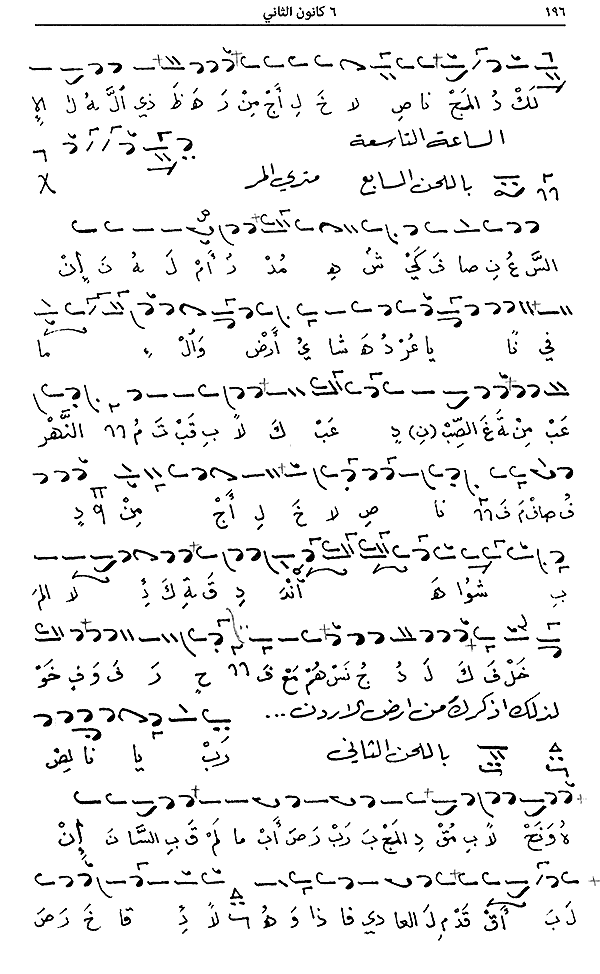 ١٩٦ ٦ كانون الثاني
لَكْ دُ المَجْ نا صِ لا خَ لِ أَجْ مِنْ رَ هَ ظَ ذي أَلَّ هُ لا إِ
الساعة التاسعة
باللحن السابع متري المر
السَّ عُ نِ صا فَ كَيْ هِ مُدْ دُ أَمْ لَ هُ نَ إِنْ
في نًا يا عُرْ دُ هَ شا يُ أَرْضْ وَالْ ءِ ما
عَبْ مِنْ ةَ غَ الصِّبْ (نِ) دِ عَبْ كَ لاً بِ قَبْ تَ مُ النَّهْرْ
فُ صانْ مَ فَ نا صِ لا خَ لِ أَجْ مِنْ دِ
بِ شوُا هَ دِ قَ ةِ كَ ذِ لا المَ
خَلْ فَ كَ لَ دُ جُ نَسْ هُمْ مَعْ فَ حٍ رَ فَ وَ فٍ خَوْ
لذلك اذكرك من ارض الاردن...
باللحن الثاني رَبْ يا نا لِصْ
هُ وَنَحْ لاً بِ مُقْ دِ المَجْ بَ رَبْ رَ صَ أَبْ ما لَمْ قَ بِ السَّا نَ إِنْ
لَ بَ أَقْ قَدْ مِ لَ العا دي فا ذا وَ هُ لاً ذِ قا خَ رَ صَ